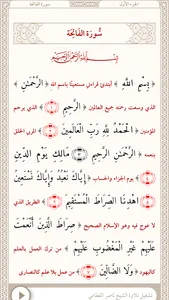 الجزء الأول سورة الفاتحة
سُورَةُ الفَاتِحَة
بِسْمِ اللَّهِ الرَّحْمَٰنِ الرَّحِيمِ
﴿ بِسْمِ اللَّهِ ﴾ أبتدئ قراءتي مستعينًا بسم الله ﴿ الرَّحْمَٰنِ ﴾
الذي وسعت رحمته جميع العالمين ﴿ الرَّحِيمِ ﴾
المؤمنين ﴿ الْحَمْدُ لِلَّهِ رَبِّ الْعَالَمِينَ ﴾ المربي الخلق
بنعمه ﴿ الرَّحْمَٰنِ الرَّحِيمِ ﴾ ﴿ مَالِكِ يَوْمِ الدِّينِ
﴾ يوم الجزاء والحساب ﴿ إِيَّاكَ نَعْبُدُ وَإِيَّاكَ نَسْتَعِينُ
اهْدِنَا الصِّرَاطَ الْمُسْتَقِيمَ ﴾ الطريق الذي
لا عوج فيه وهو الإسلام الصحيح ﴿ صِرَاطَ الَّذِينَ أَنْعَمْتَ
عَلَيْهِمْ غَيْرِ الْمَغْضُوبِ عَلَيْهِمْ ﴾ من ترك العمل بالعلم
كاليهود ﴿ وَلَا الضَّالِّينَ ﴾ من عمل بلا علم كالنصارى
تشغيل تلاوة الشيخ ناصر القطامي